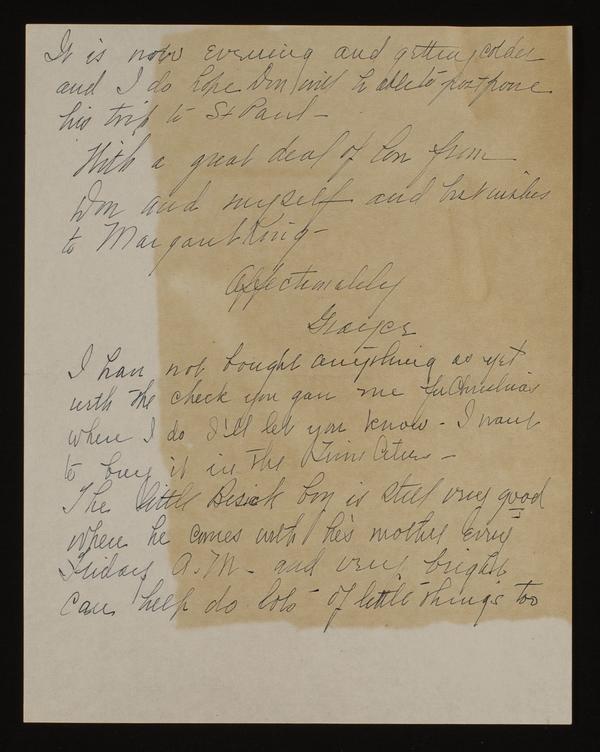 It is now evening and getting colder
and I do hope Don will be able to postpone
his trip to St Paul -
With a great deal of love from
Don and myself and best wishes
to Margaret King -
Affectionately
Grayce
I have not bought anything as yet
with the check you gave me for Christmas
when I do I'll let you know - I want
to buy it in the Twin Cities -
The little Besick boy is still very good
when he comes with he's mother every
Friday A.M. and very bright
can help do lots of little things too